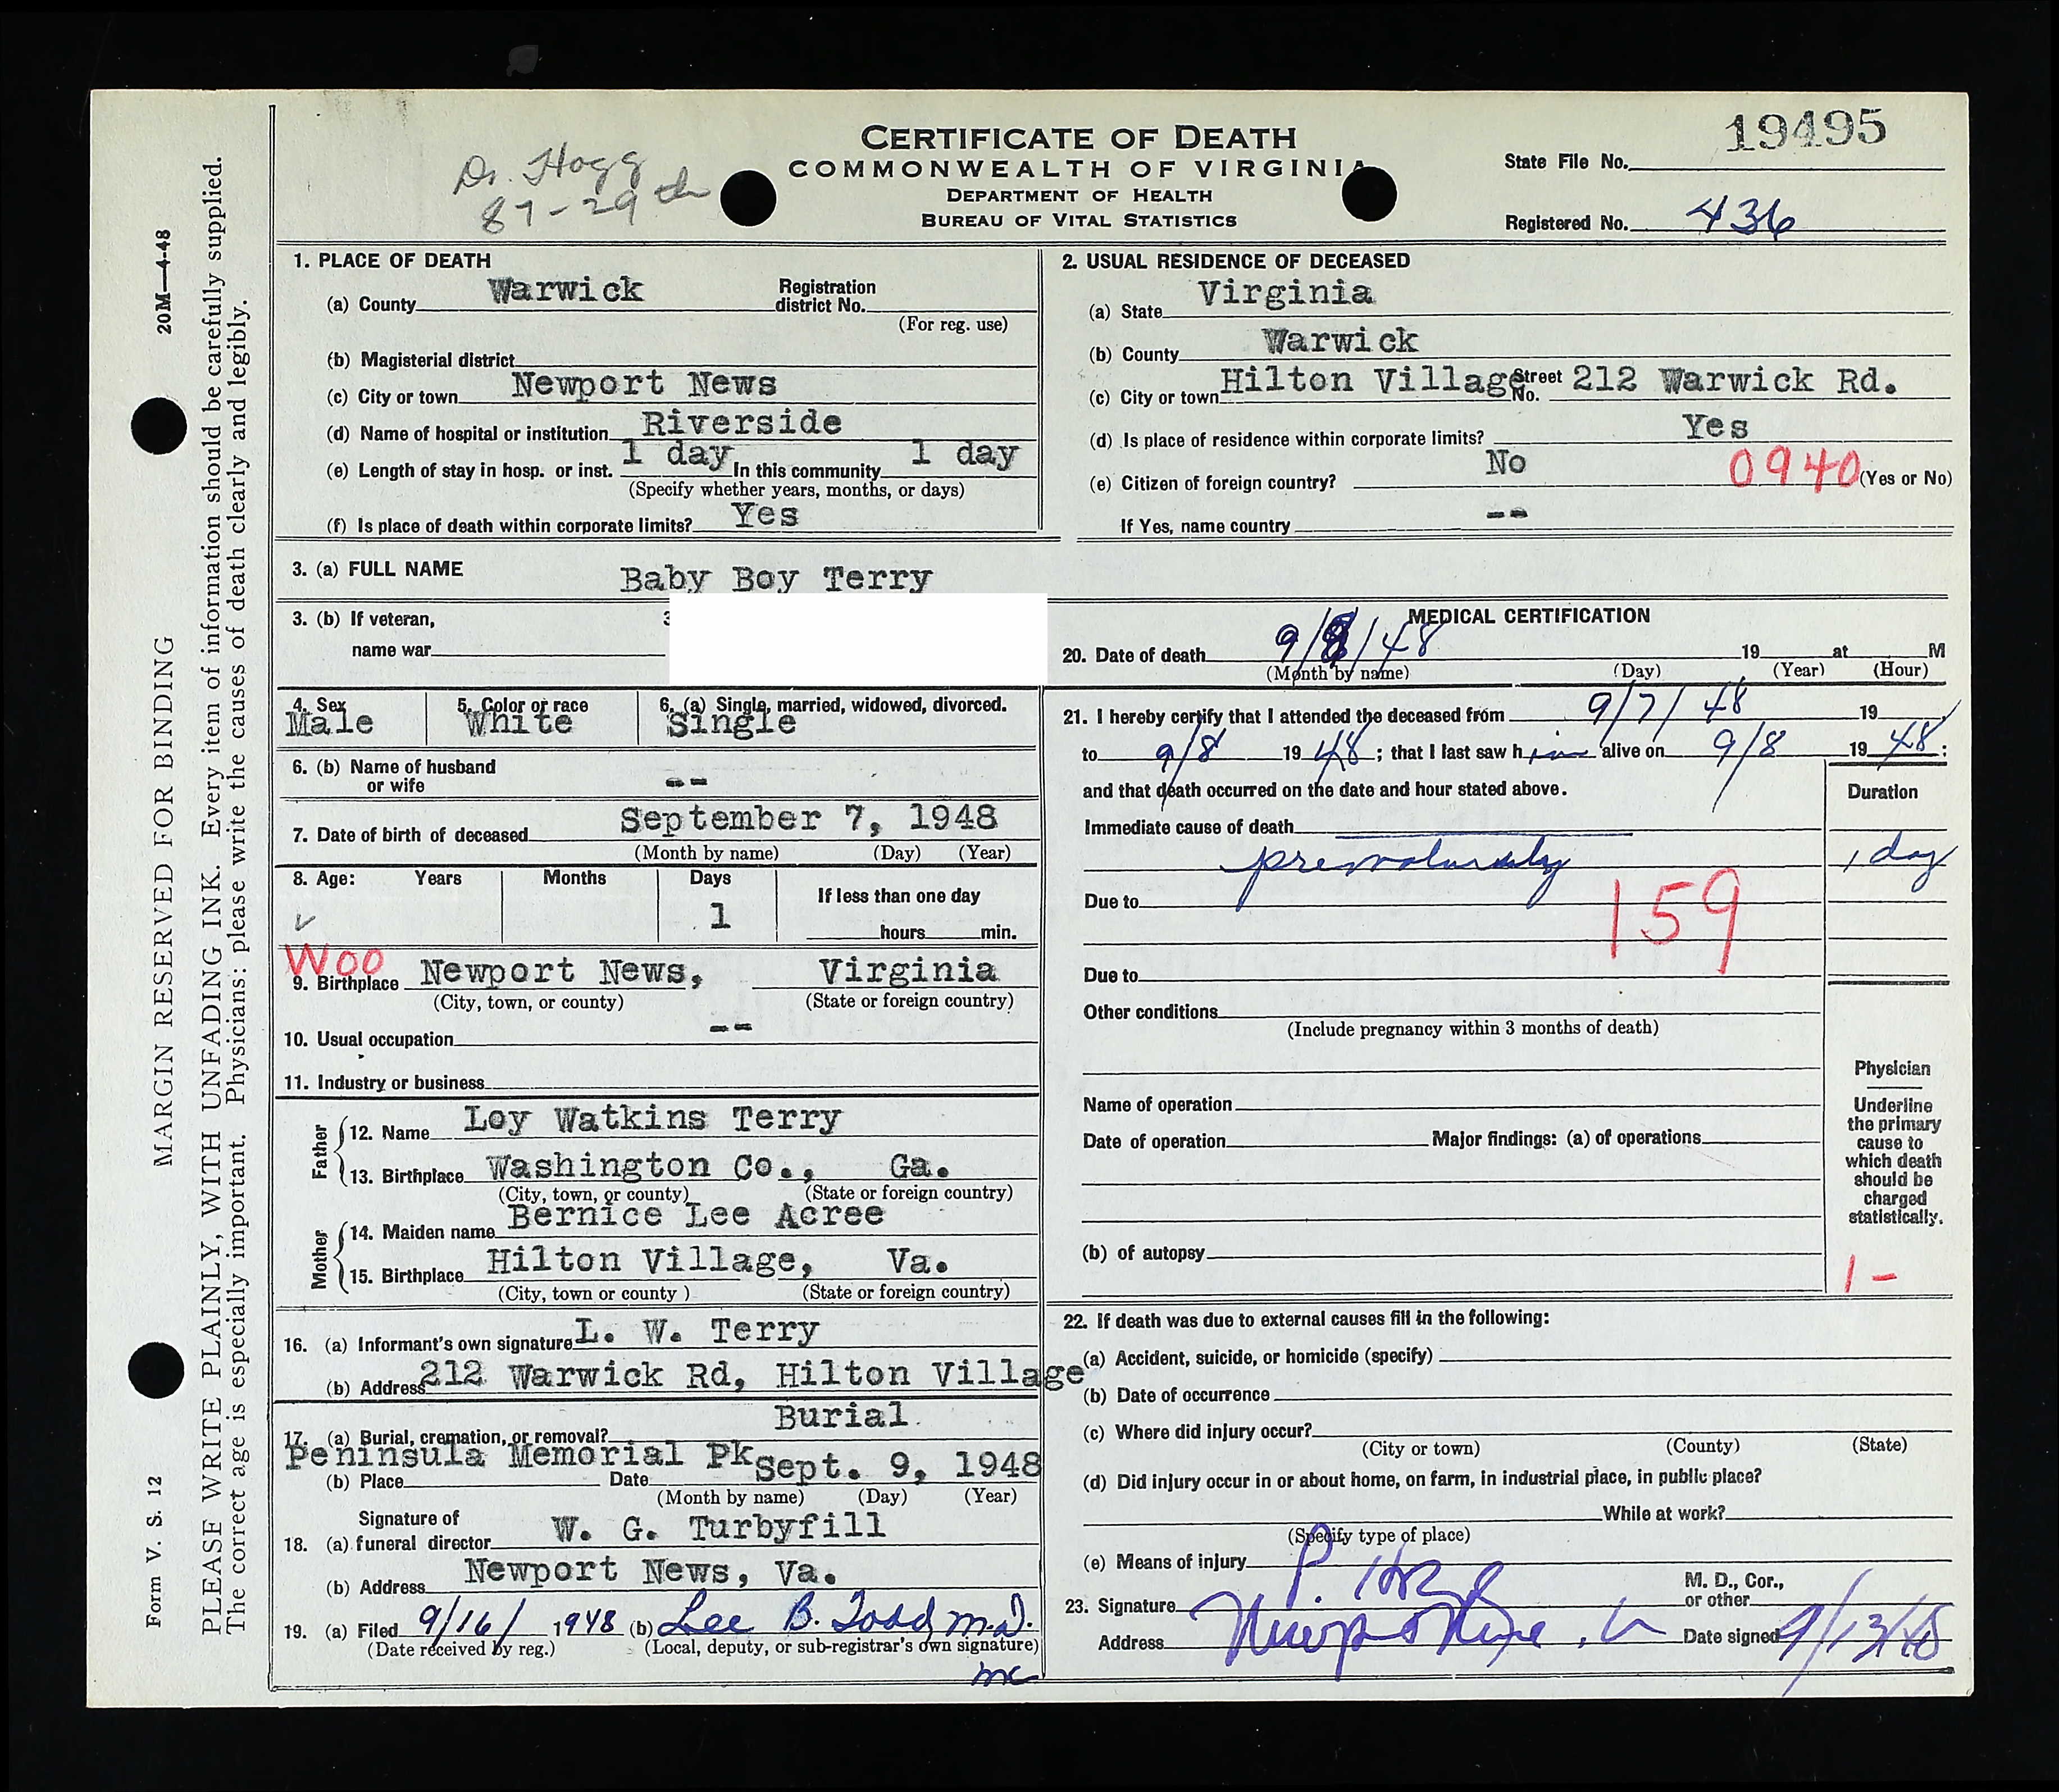 Dr. Hogg
87-29th
CERTIFICATE OF DEATH
COMMONWEALTH OF VIRGINIA
DEPARTMENT OF HEALTH
BUREAU OF VITAL STATISTICS
19495
State File No.
Registered No. 436
MARGIN RESERVED FOR BINDING 20M—4-48
PLEASE WRITE PLAINLY, WITH UNFADING INK. Every item of information should be carefully supplied.
The correct age is especially important. Physicians: please write the causes of death clearly and legibly.
Form V. S. 12
1. PLACE OF DEATH
(a) County Warwick Registration district No.
(For reg. use)
(b) Magisterial district
(c) City or town Newport News
(d) Name of hospital or institution Riverside
(e) Length of stay in hosp. or inst. 1 day In this community 1 day
(Specify whether years, months, or days)
(f) Is place of death within corporate limits? Yes
2. USUAL RESIDENCE OF DECEASED
(a) State Virginia
(b) County Warwick
(c) City or town Hilton Village Street No. 212 Warwick Rd.
(d) Is place of residence within corporate limits? Yes
(e) Citizen of foreign country? No 0940 (Yes or No)
If Yes, name country --
3. (a) FULL NAME Baby Boy Terry
3. (b) If veteran, 3
name war
4. Sex Male
5. Color or race White
6. (a) Single, married, widowed, divorced. Single
6. (b) Name of husband or wife --
7. Date of birth of deceased September 7, 1948
(Month by name) (Day) (Year)
8. Age: Years Months Days If less than one day
1 hours min.
W00
9. Birthplace Newport News, Virginia
(City, town, or county) (State or foreign country)
10. Usual occupation --
11. Industry or business
Father
12. Name Loy Watkins Terry
13. Birthplace Washington Co., Ga.
(City, town, or county) (State or foreign country)
Mother
14. Maiden name Bernice Lee Acree
15. Birthplace Hilton Village, Va.
(City, town or county) (State or foreign country)
16. (a) Informant's own signature L. W. Terry
(b) Address 212 Warwick Rd, Hilton Village
17. (a) Burial, cremation, or removal? Burial
(b) Place Peninsula Memorial Pk Date Sept. 9, 1948
(Month by name) (Day) (Year)
18. (a) Signature of funeral director W. G. Turbyfill
(b) Address Newport News, Va.
19. (a) Filed 9/16/ 1948 (b) Lee B. Todd M.D.
(Date received by reg.) (Local, deputy, or sub-registrar's own signature)
mc
MEDICAL CERTIFICATION
20. Date of death 9/8/48 19 at M
(Month by name) (Day) (Year) (Hour)
21. I hereby certify that I attended the deceased from 9/7/48 19
to 9/8 19 48; that I last saw him alive on 9/8 19 48:
and that death occurred on the date and hour stated above. Duration
Immediate cause of death
prematurity 1 day
Due to 159
Due to
Other conditions
(Include pregnancy within 3 months of death)
Name of operation
Date of operation Major findings: (a) of operations
(b) of autopsy
Physician
Underline
the primary
cause to
which death
should be
charged
statistically.
1 -
22. If death was due to external causes fill in the following:
(a) Accident, suicide, or homicide (specify)
(b) Date of occurrence
(c) Where did injury occur?
(City or town) (County) (State)
(d) Did injury occur in or about home, on farm, in industrial place, in public place?
While at work?
(Specify type of place)
(e) Means of injury
23. Signature M. D., Cor., or other
Address Date signed 9/13/48